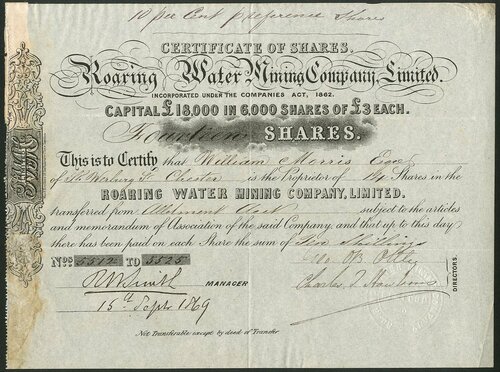 10 per Cent preference Shares
CERTIFICATE OF SHARES.
Roaring Water Mining Company, Limited.
INCORPORATED UNDER THE COMPANIES ACT, 1862.
CAPITAL £18,000 IN 6,000 SHARES OF £3 EACH.
Fourteen SHARES.
This is to Certify that William Morris Esqr
of St Chester is the Proprietor of 14 Shares in the
ROARING WATER MINING COMPANY, LIMITED.
transferred from Allotment subject to the articles
and memorandum of Association of the said Company, and that up to this day
there has been paid on each Share the sum of Shillings
Nos 5512 TO 5525
R W Smith MANAGER
Charles J
DIRECTORS.
15th Septr 1869
Not Transferable except by deed of Transfer